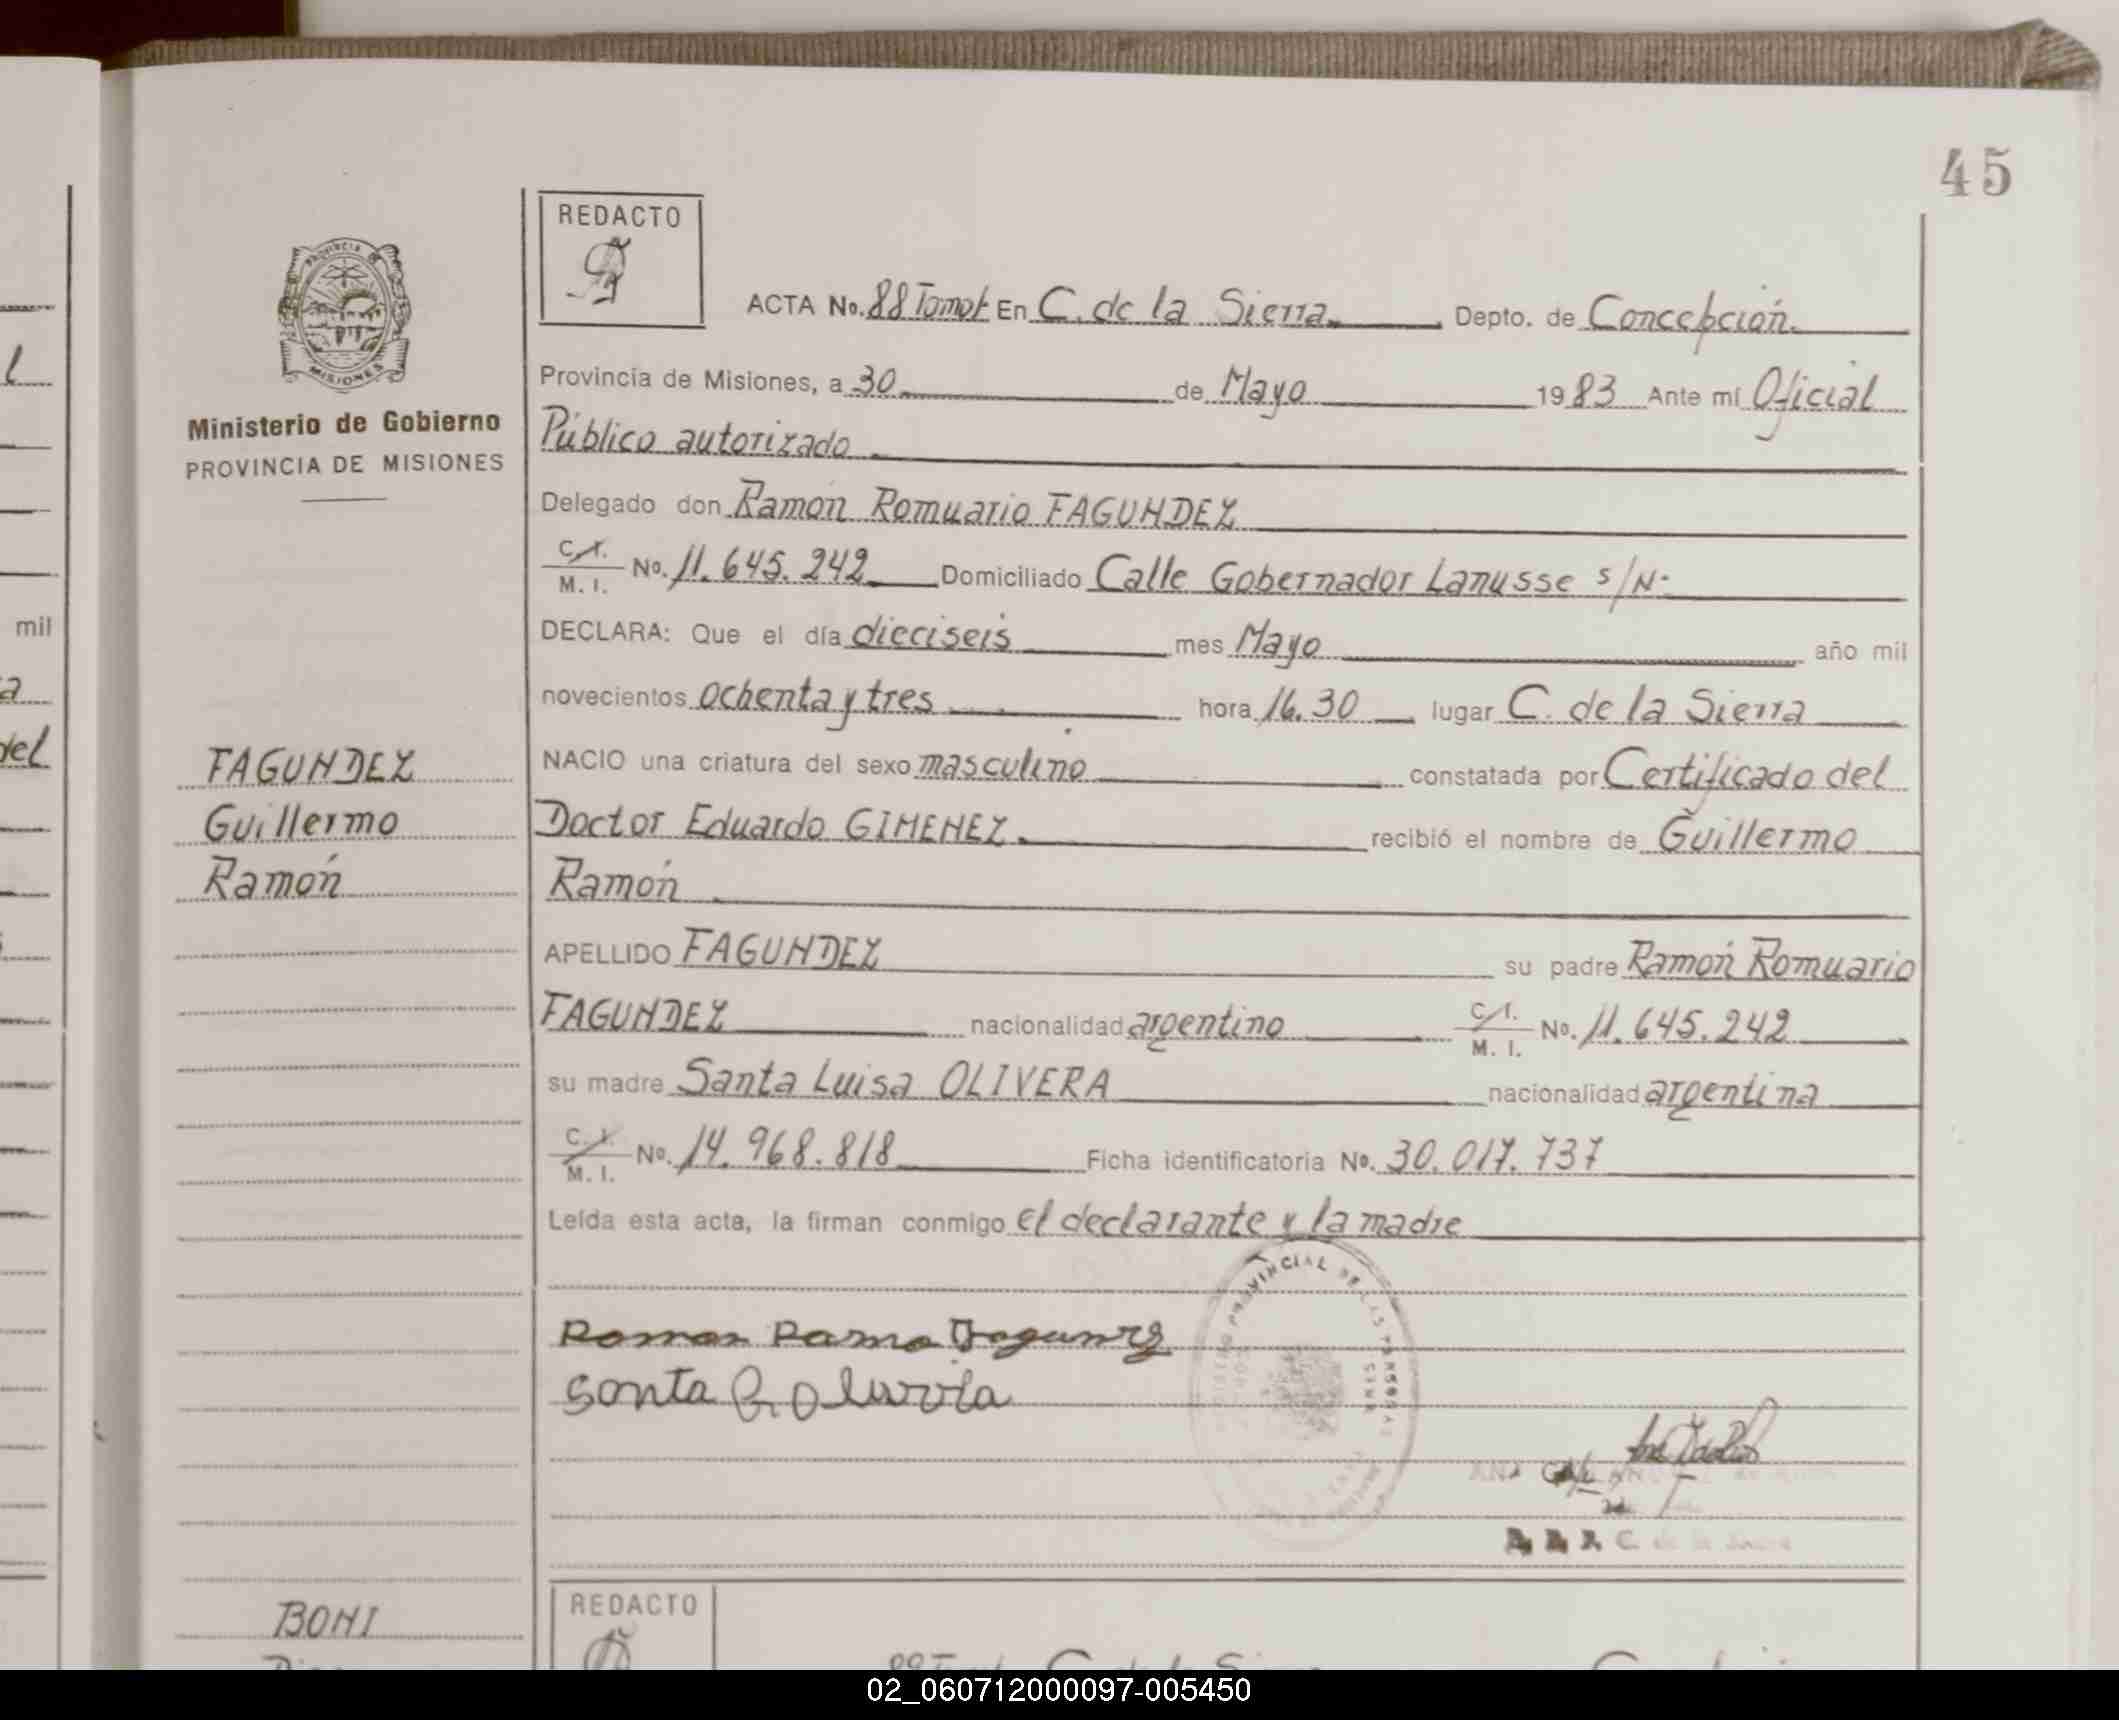 45
REDACTO
ACTA No. 88 Tomo I En C. de la Sierra Depto. de Concepción.
Provincia de Misiones, a 30 de Mayo 1983 Ante mí Oficial
Público autorizado
Delegado don Ramón Romuario FAGUNDEZ
C.I.
M. I. No. 11.645.242 Domiciliado Calle Gobernador Lanusse s/N-
DECLARA: Que el día dieciseis mes Mayo año mil
novecientos ochenta y tres hora 16.30 lugar C. de la Sierra
NACIO una criatura del sexo masculino constatada por Certificado del
Doctor Eduardo GIMENEZ. recibió el nombre de Guillermo
Ramón
APELLIDO FAGUNDEZ su padre Ramón Romuario
FAGUNDEZ nacionalidad argentino C.I.
M. I. No. 11.645.242
su madre Santa Luisa OLIVERA nacionalidad argentina
C.I.
M. I. No. 14.968.818 Ficha identificatoria No. 30.017.737
Leída esta acta, la firman conmigo el declarante y la madre
PROVINCIA DE
MISIONES
Ministerio de Gobierno
PROVINCIA DE MISIONES
FAGUNDEZ
Guillermo
Ramón
PROVINCIAL DE LAS PERSONAS
Santa
C. de la Sierra
BONI
REDACTO
l
mil
a
del
02_060712000097-005450